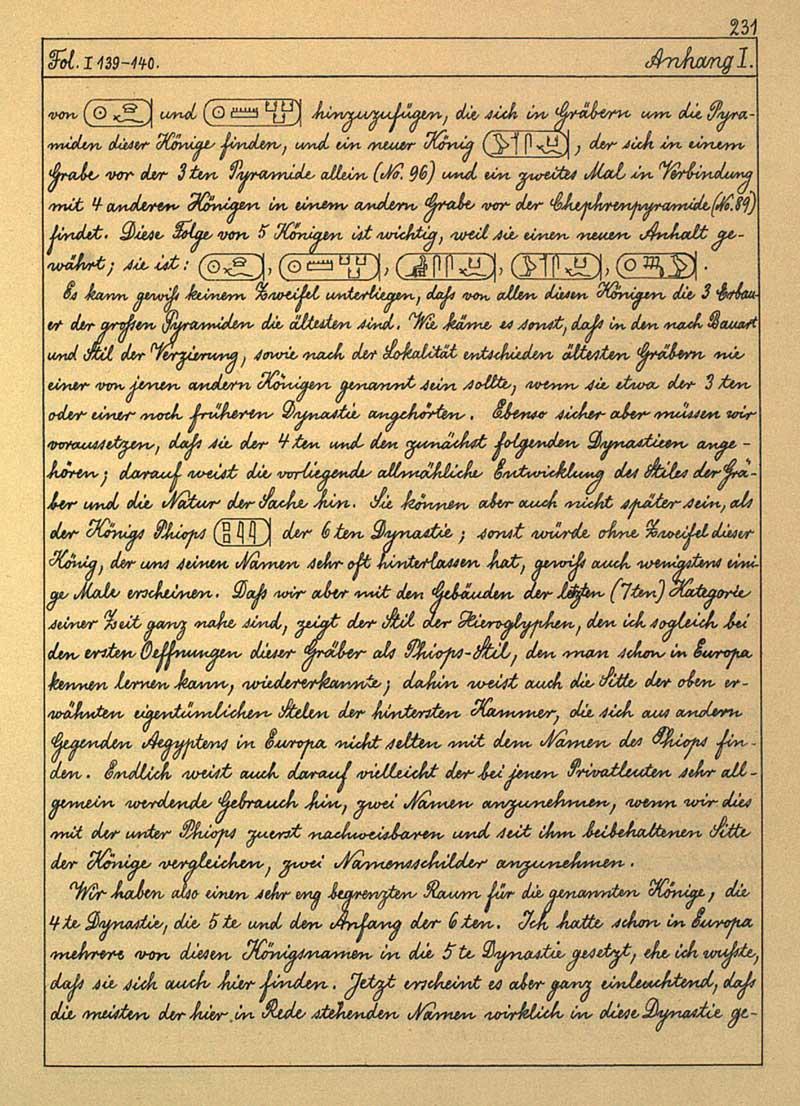 231
Fol. I 139-140. Anhang I.
von und hinzuzufügen, die sich in Gräbern um die Pyra-
miden dieser Könige finden, und ein neuer König , der sich in einem
Grabe vor der 3ten Pyramide allein (No. 96) und ein zweites Mal in Verbindung
mit 4 anderen Königen in einem andern Grabe vor der Chephrenpyramide (No. 89)
findet. Diese Folge von 5 Königen ist wichtig, weil sie einen neuen Anhalt ge-
währt; sie ist: , , , , .
Es kann gewiß keinem Zweifel unterliegen, daß von allen diesen Königen die 3 Erbau-
er der großen Pyramiden die ältesten sind. Wie käme es sonst, daß in den nach Bauart
und Stil der Verzierung, sowie nach der Lokalität entschieden ältesten Gräbern nie
einer von jenen andern Königen genannt sein sollte, wenn sie etwa der 3ten
oder einer noch früheren Dynastie angehörten. Ebenso sicher aber müssen wir
voraussetzen, daß sie der 4ten und den zunächst folgenden Dynastieen ange-
hören; darauf weist die vorliegende allmähliche Entwicklung des Stiles der Grä-
ber und die Natur der Sache hin. Sie können aber auch nicht später sein, als
der Königs Phiops der 6ten Dynastie; sonst würde ohne Zweifel dieser
König, der uns seinen Namen sehr oft hinterlassen hat, gewiß auch wenigstens eini-
ge Male erscheinen. Daß wir aber mit den Gebäuden der letzten (7ten) Kategorie
seiner Zeit ganz nahe sind, zeigt der Stil der Hieroglyphen, den ich sogleich bei
den ersten Oeffnungen dieser Gräber als Phiops-Stil, den man schon in Europa
kennen lernen kann, wiedererkannte; dahin weist auch die Sitte der oben er-
wähnten eigentümlichen Stelen der hintersten Kammer, die sich aus andern
Gegenden Aegyptens in Europa nicht selten mit dem Namen des Phiops fin-
den. Endlich weist auch darauf vielleicht der bei jenen Privatleuten sehr all-
gemein werdende Gebrauch hin, zwei Namen anzunehmen, wenn wir dies
mit der unter Phiops zuerst nachweisbaren und seit ihm beibehaltenen Sitte
der Könige vergleichen, zwei Namensschilder anzunehmen.
Wir haben also einen sehr eng begrenzten Raum für die genannten Könige, die
4te Dynastie, die 5te und den Anfang der 6ten. Ich hatte schon in Europa
mehrere von diesen Königsnamen in die 5te Dynastie gesetzt, ehe ich wußte,
daß sie sich auch hier finden. Jetzt erscheint es aber ganz einleuchtend, daß
die meisten der hier in Rede stehenden Namen wirklich in diese Dynastie ge-